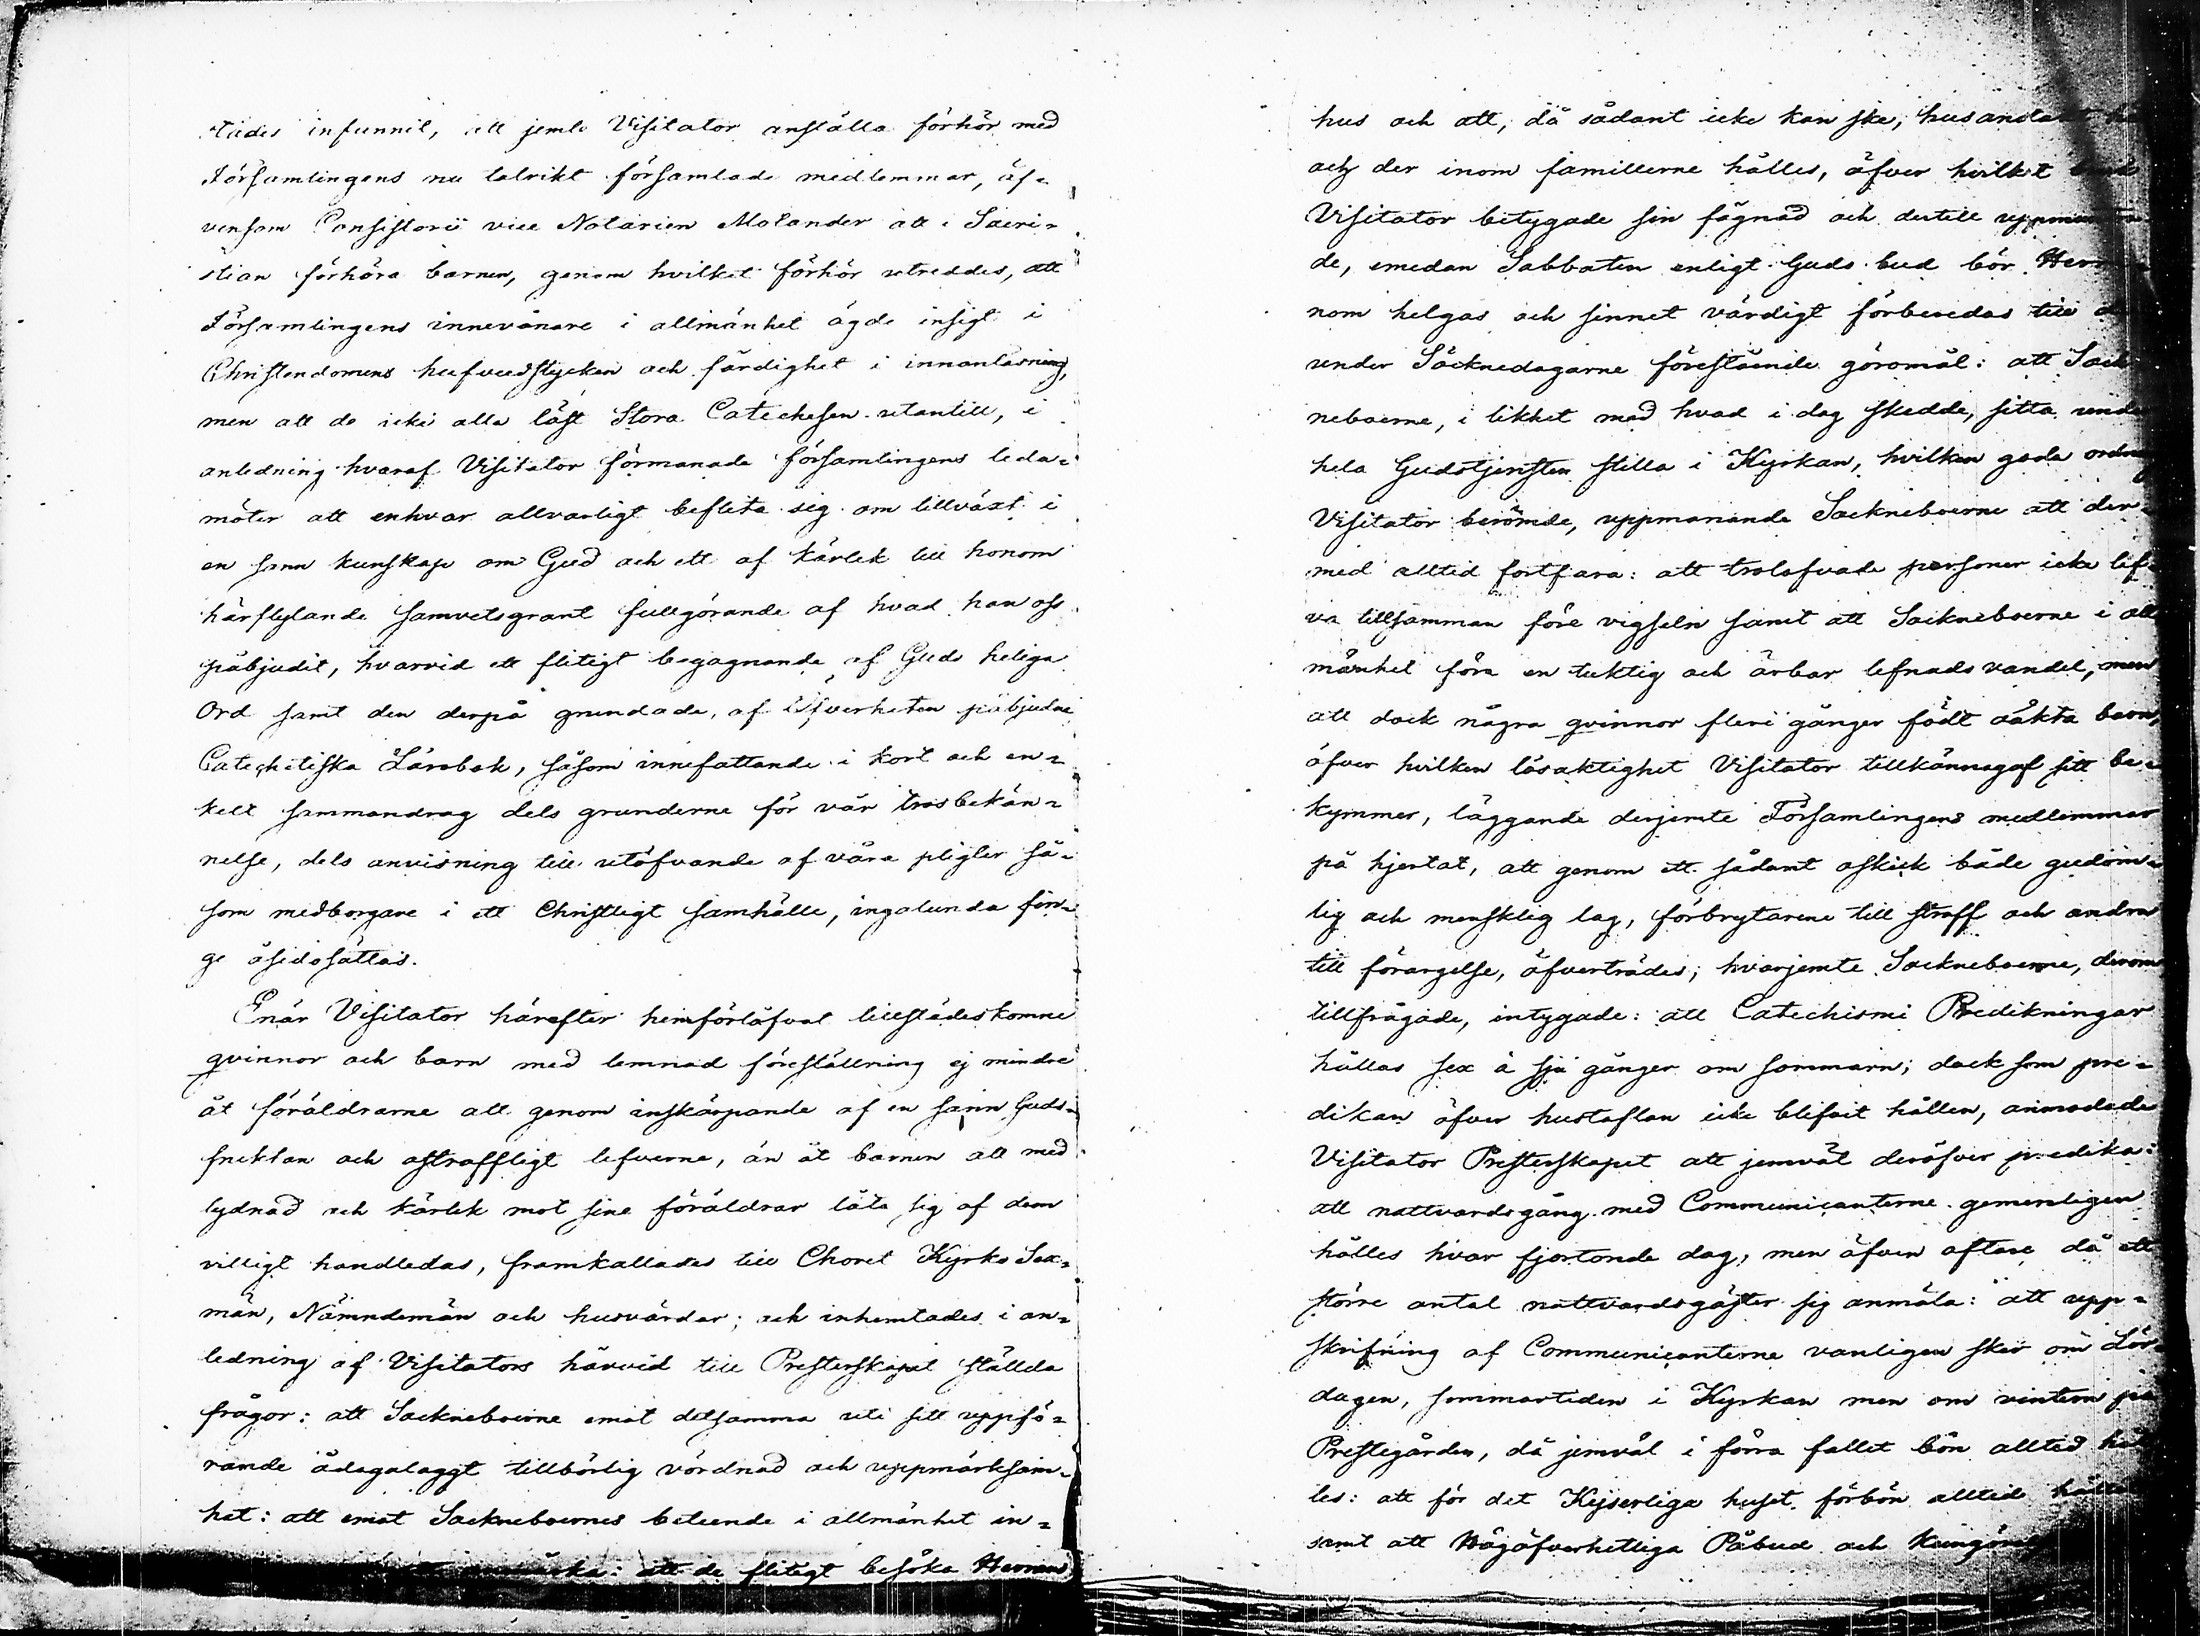 städes infunnit, att jemte Visitator anställa förhör med
Församlingens nu talrikt församlade medlemmar, äf-
vensom Consistorii vice Notarien Molander att i Sacri-
stian förhöra barnen, genom hvilket förhör utreddes, att
Församlingens innevånare i allmänhet ägde insigt i
Christendomens hufvudstycken och färdighet i innanläsning,
men att de icke alla läst Stora Catechesen utantill, i
anledning hvaraf Visitator förmanade församlingens leda-
möter att enhvar allvarligt beflita sig om tillväxt i
en sann kunskap om Gud och ett af kärlek till honom
härflytande samvetsgrant fullgörande af hvad han oss
påbjudit, hvarvid ett flitigt begagnande af Guds heliga
Ord samt den derpå grundade, af Öfverheten påbjudne
Catechetiska Lärobok, såsom innefattande i kort och en-
kelt sammandrag dels grunderne för vår trosbekän-
nelse, dels anvisning till utöfvande af våra pligter så-
som medborgare i ett Christligt samhälle, ingalunda fin-
ge åsidosättas.
Enär Visitator härefter hemförlåfvat tillstädeskomne
qvinnor och barn med lemnad föreställning ej mindre
åt föräldrarne att genom inskärpande af en sann Guds-
fruktan och ostraffligt lefverne, än åt barnen att med
lydnad och kärlek mot sine föräldrar låta sig af dem
villigt handledas, framkallades till Choret Kyrko Sex-
män, Nämndemän och husvärdar; och inhemtades i an-
ledning af Visitators härvid till Presterskapet ställda
frågor: att Sockneboerne emot detsamma uti sitt uppfö-
rande ådagalaggt tillbörlig vördnad och uppmärksam-
het: att emot Sockneboernes beteende i allmänhet in-
att de flitigt besöka Herrans
hus och att, då sådant icke kan ske, husandakt
och der inom famillerne hålles, öfver hvilket
Visitator betygade sin fägnad och dertill uppmuntra-
de, emedan Sabbaten enligt Guds bud bör Herra-
nom helgas och sinnet värdigt förberedas till
under Söcknedagarne förestående göromål: att Sock-
neboerne, i likhet med hvad i dag skedde, sitta under
hela Gudstjensten stilla i Kyrkan, hvilken goda ordning
Visitator berömde, uppmanande Sockneboerne att der-
med alltid fortfara: att trolofvade personer icke lef-
va tillsamman före vigseln samt att Sockneboerne i all-
mänhet föra en tuktig och ärbar lefnads vandel, men
att dock några qvinnor flere gånger födt oäkta barn,
öfver hvilken lösaktighet Visitator tillkännagaf sitt be-
kymmer, läggande derjemte Församlingens medlemmar
på hjertat, att genom ett sådant oskick både gudom-
lig och mensklig lag, förbrytarene till straff och andra
till förargelse, öfverträdes; hvarjemte Sockneboerne, derom
tillfrågade, intygade: att Catechismi Predikningar
hållas sex à sju gånger om sommarn; dock som pre-
dikan öfver hustaflan icke blifvit hållen, anmodade
Visitator Presterskapet att jemväl deröfver predika:
att nattvardsgång med Communicanterne gemenligen
hålles hvar fjortonde dag, men äfven oftare, då ett
större antal nattvardsgäster sig anmäla: att upp-
skrifning af Communicanterne vanligen sker om Lör-
dagen, sommartiden i Kyrkan men om vintern på
Prestegården, då jemväl i förra fallet bön alltid hål-
les: att för det Kejserliga huset förbön alltid hålles
samt att Högöfverhetliga Påbud och